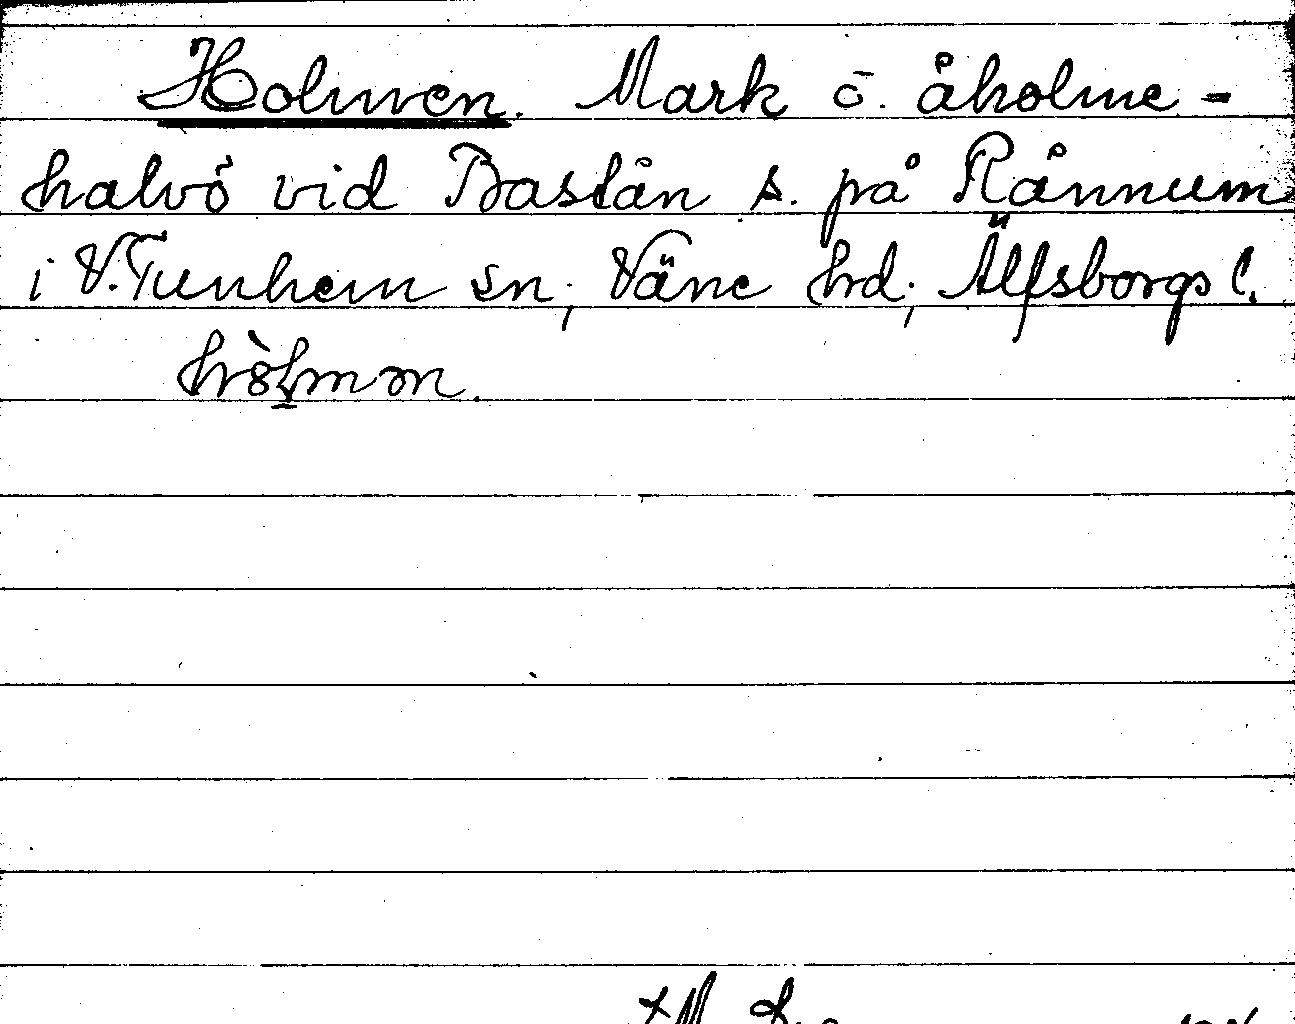 Holmen. Mark o. åholme-
halvö vid Bastån s. på Rånnum
i V. Tunhem sn, Väne hd, Älfsborgs l.